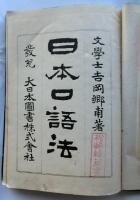 文學士吉岡鄉甫著
日本口語法
發兌 大日本圖書株式會社